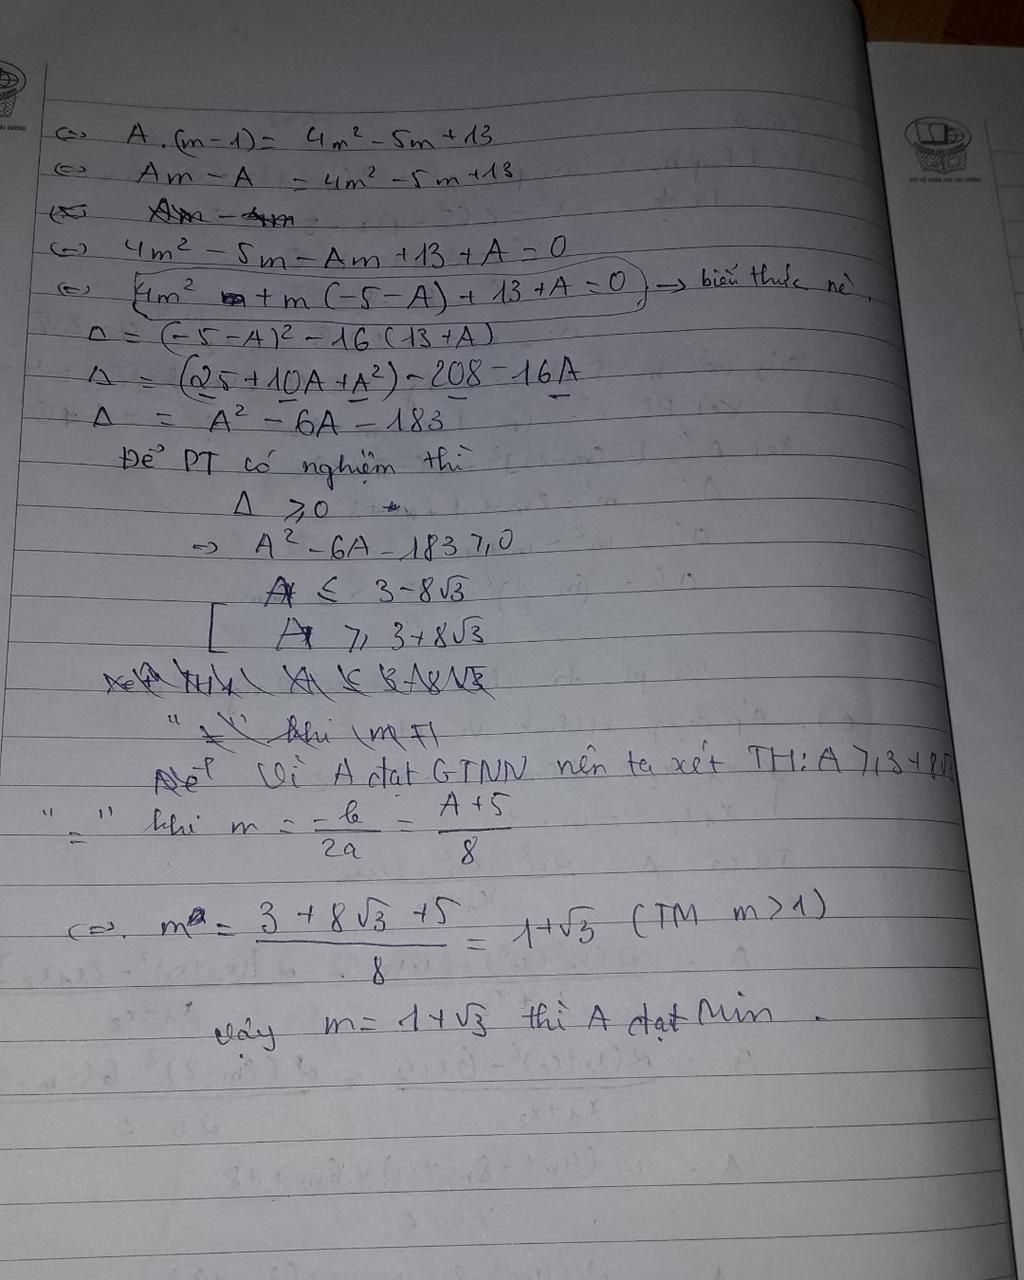 ⇔ A.(m-1) = 4m² - 5m + 13
⇔ Am - A = 4m² - 5m + 13
⇔ 4m² - 5m - Am + 13 + A = 0
⇔ 4m² + m(-5-A) + 13 + A = 0 → biểu thức nè.
Δ = (-5-A)² - 16(13+A)
Δ = (25 + 10A + A²) - 208 - 16A
Δ = A² - 6A - 183
Để PT có nghiệm thì
Δ ⩾ 0
⇒ A² - 6A - 183 ⩾ 0
A ≤ 3-8√3
[ A ⩾ 3+8√3
Vì A đạt GTNN nên ta xét TH: A ⩾ 3+8√3
"=" khi m = -b/2a = A+5/8
⇔. m = 3+8√3+5/8 = 1+√3 (TM m>1)
Vậy m = 1+√3 thì A đạt Min.